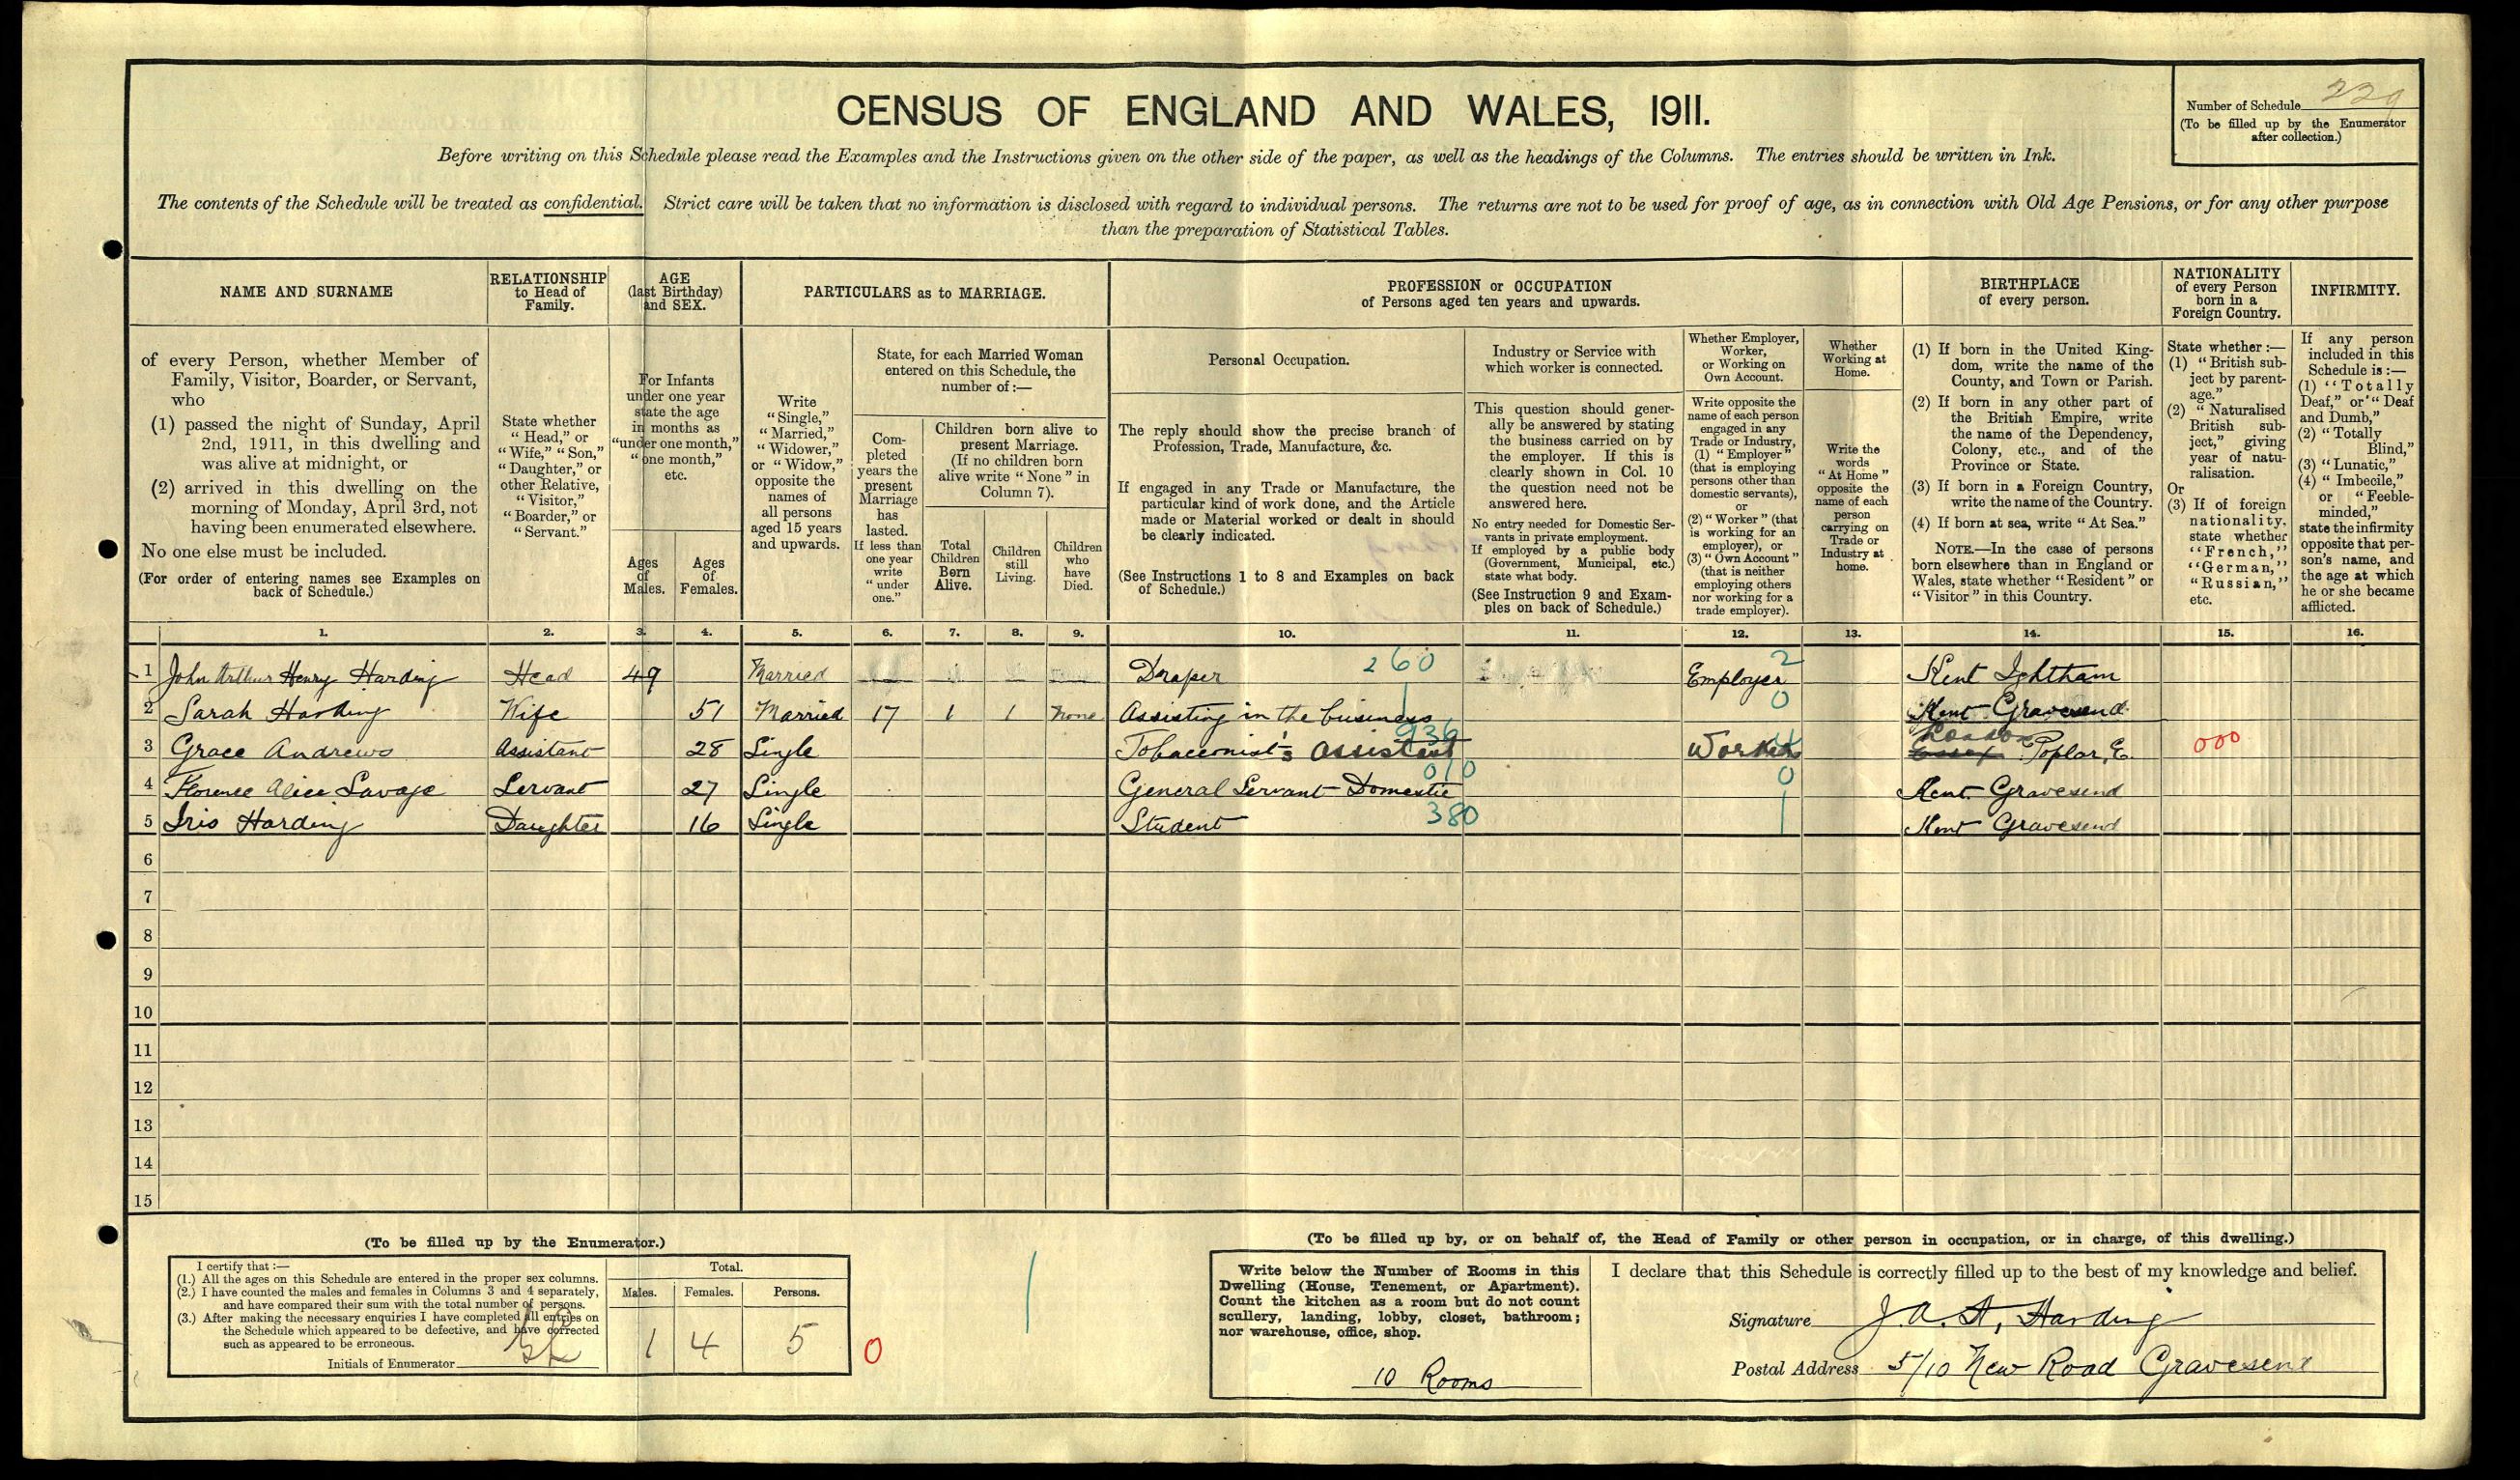 CENSUS OF ENGLAND AND WALES, 1911.
Number of Schedule 229
(To be filled up by the Enumerator
after collection.)
Before writing on this Schedule please read the Examples and the Instructions given on the other side of the paper, as well as the headings of the Columns. The entries should be written in Ink.
The contents of the Schedule will be treated as confidential. Strict care will be taken that no information is disclosed with regard to individual persons. The returns are not to be used for proof of age, as in connection with Old Age Pensions, or for any other purpose
than the preparation of Statistical Tables.
NAME AND SURNAME
of every Person, whether Member of
Family, Visitor, Boarder, or Servant,
who
(1) passed the night of Sunday, April
2nd, 1911, in this dwelling and
was alive at midnight, or
(2) arrived in this dwelling on the
morning of Monday, April 3rd, not
having been enumerated elsewhere.
No one else must be included.
(For order of entering names see Examples on
back of Schedule.)
RELATIONSHIP
to Head of
Family.
State whether
"Head," or
"Wife," "Son,"
"Daughter," or
other Relative,
"Visitor,"
"Boarder," or
"Servant."
AGE
(last Birthday)
and SEX.
For Infants
under one year
state the age
in months as
"under one month,"
"one month,"
etc.
Ages
of
Males.
Ages
of
Females.
PARTICULARS as to MARRIAGE.
Write
"Single,"
"Married,"
"Widower,"
or "Widow,"
opposite the
names of
all persons
aged 15 years
and upwards.
State, for each Married Woman
entered on this Schedule, the
number of:—
Com-
pleted
years the
present
Marriage
has
lasted.
If less than
one year
write
"under
one."
Children born alive to
present Marriage.
(If no children born
alive write "None" in
Column 7).
Total
Children
Born
Alive.
Children
still
Living.
Children
who
have
Died.
PROFESSION or OCCUPATION
of Persons aged ten years and upwards.
Personal Occupation.
The reply should show the precise branch of
Profession, Trade, Manufacture, &c.
If engaged in any Trade or Manufacture, the
particular kind of work done, and the Article
made or Material worked or dealt in should
be clearly indicated.
(See Instructions 1 to 8 and Examples on back
of Schedule.)
Industry or Service with
which worker is connected.
This question should gener-
ally be answered by stating
the business carried on by
the employer. If this is
clearly shown in Col. 10
the question need not be
answered here.
No entry needed for Domestic Ser-
vants in private employment.
If employed by a public body
(Government, Municipal, etc.)
state what body.
(See Instruction 9 and Exam-
ples on back of Schedule.)
Whether Employer,
Worker,
or Working on
Own Account.
Write opposite the
name of each person
engaged in any
Trade or Industry,
(1) "Employer"
(that is employing
persons other than
domestic servants),
or
(2) "Worker" (that
is working for an
employer), or
(3) "Own Account"
(that is neither
employing others
nor working for a
trade employer).
Whether
Working at
Home.
Write the
words
"At Home"
opposite the
name of each
person
carrying on
Trade or
Industry at
home.
BIRTHPLACE
of every person.
(1) If born in the United King-
dom, write the name of the
County, and Town or Parish.
(2) If born in any other part of
the British Empire, write
the name of the Dependency,
Colony, etc., and of the
Province or State.
(3) If born in a Foreign Country,
write the name of the Country.
(4) If born at sea, write "At Sea."
NOTE.—In the case of persons
born elsewhere than in England or
Wales, state whether "Resident" or
"Visitor" in this Country.
NATIONALITY
of every Person
born in a
Foreign Country.
State whether :—
(1) "British sub-
ject by parent-
age."
(2) "Naturalised
British sub-
ject," giving
year of natu-
ralisation.
Or
(3) If of foreign
nationality,
state whether
"French,"
"German,"
"Russian,"
etc.
INFIRMITY.
If any person
included in this
Schedule is:—
(1) "Totally
Deaf," or "Deaf
and Dumb,"
(2) "Totally
Blind,"
(3) "Lunatic,"
(4) "Imbecile,"
or "Feeble-
minded,"
state the infirmity
opposite that per-
son's name, and
the age at which
he or she became
afflicted.
1. 2. 3. 4. 5. 6. 7. 8. 9. 10. 11. 12. 13. 14. 15. 16.
1 John Arthur Henry Harding Head 49 Married Draper 260 Employer 2 Kent Ightham
2 Sarah Harding Wife 51 Married 17 1 1 None Assisting in the business 1 0 Kent Gravesend
3 Grace Andrews Assistant 28 Single Tobacconist's Assistant 936 Worker 4 London Essex Poplar, E. 000
4 Florence Alice Savage Servant 27 Single General Servant Domestic 010 0 Kent Gravesend
5 Iris Harding Daughter 16 Single Student 380 1 Kent Gravesend
6
7
8
9
10
11
12
13
14
15
(To be filled up by the Enumerator.)
I certify that :—
(1.) All the ages on this Schedule are entered in the proper sex columns.
(2.) I have counted the males and females in Columns 3 and 4 separately,
and have compared their sum with the total number of persons.
(3.) After making the necessary enquiries I have completed all entries on
the Schedule which appeared to be defective, and have corrected
such as appeared to be erroneous.
Initials of Enumerator
Total.
Males. Females. Persons.
1 4 5
0
(To be filled up by, or on behalf of, the Head of Family or other person in occupation, or in charge, of this dwelling.)
Write below the Number of Rooms in this
Dwelling (House, Tenement, or Apartment).
Count the kitchen as a room but do not count
scullery, landing, lobby, closet, bathroom;
nor warehouse, office, shop.
10 Rooms
I declare that this Schedule is correctly filled up to the best of my knowledge and belief.
Signature J. A. H. Harding
Postal Address 5/10 New Road Gravesend